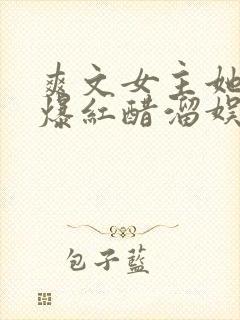 爽文女主她
爆紅醋溜娛
包子藍